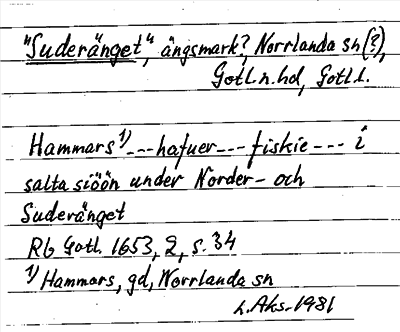 "Suderänget", ängsmark?, Norrlanda sn(?),
Gotl.n.hd, Gotl.l.
Hammars 1) --- hafuer --- fiskie --- i
salta siöön under Norder- och
Suderänget
Rb Gotl. 1653, 2, s. 34
1) Hammars, gd, Norrlanda sn
h.Aks. 1981